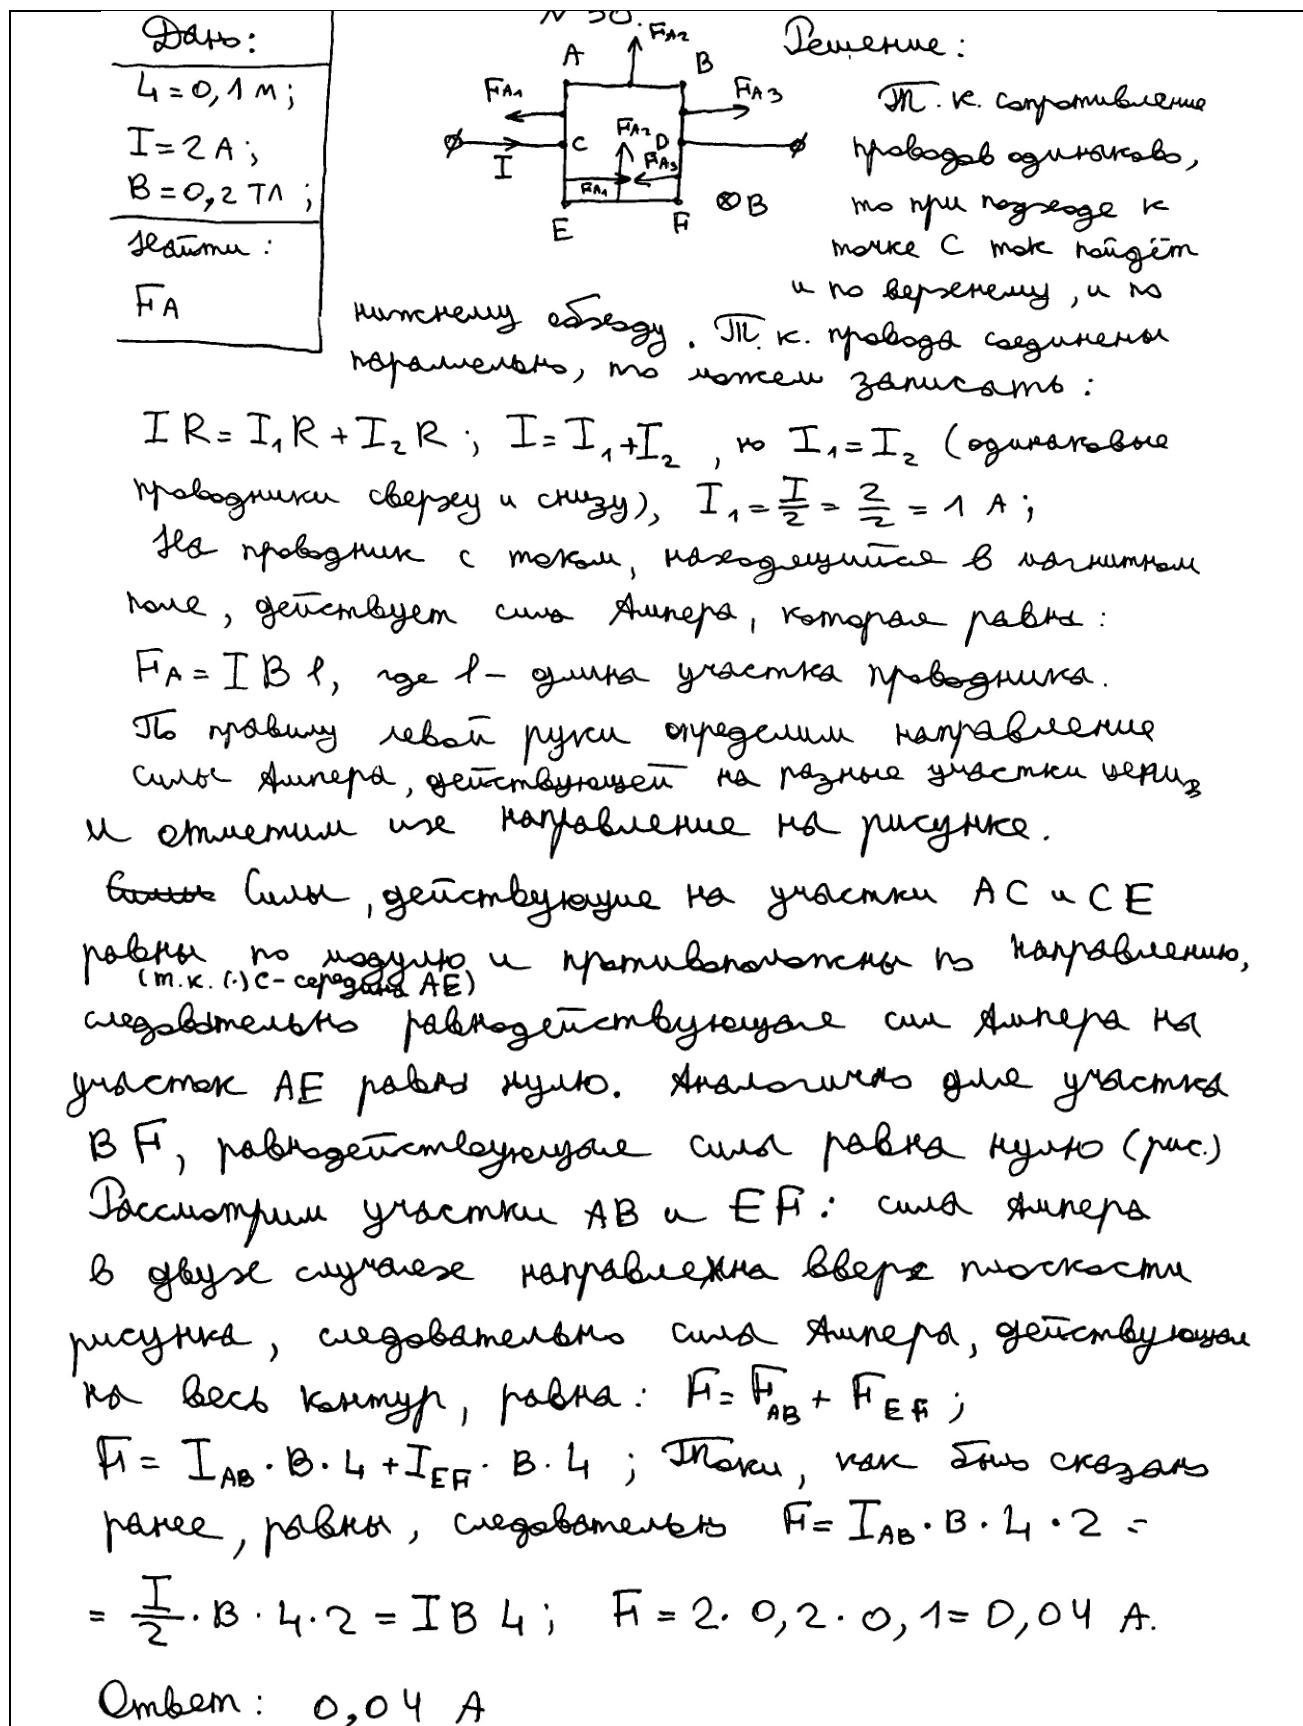 Дано:
L = 0,1 м;
I = 2 А;
B = 0,2 Тл;
Найти:
FА
N 30.
A
B
FA2
FA1
FA3
I
C
FA2
D
FA1
FA3
E
F
⊗B
Решение:
Т. к. сопротивление
проводов одинаково,
то при подходе к
точке С ток пойдёт
и по верхнему, и по
нижнему обходу. Т. к. провода соединены
параллельно, то можем записать:
IR = I₁R + I₂R ; I = I₁ + I₂ , но I₁ = I₂ (одинаковые
проводники сверху и снизу), I₁ = I/2 = 2/2 = 1 А;
На проводник с током, находящийся в магнитном
поле, действует сила Ампера, которая равна:
FА = I B l, где l - длина участка проводника.
По правилу левой руки определим направление
силы Ампера, действующей на разные участки цепи,
и отметим их направление на рисунке.
Силы, действующие на участки АС и СЕ
равны по модулю и противоположны по направлению,
(т.к. (·) С - середина АЕ)
следовательно равнодействующая сил Ампера на
участок АЕ равна нулю. Аналогично для участка
BF, равнодействующая силы равна нулю (рис.)
Рассмотрим участки АВ и EF: сила Ампера
в двух случаях направлена вверх плоскости
рисунка, следовательно сила Ампера, действующая
на весь контур, равна: F = FAB + FEF ;
F = IAB · B · L + IEF · B · L ; Токи, как было сказано
ранее, равны, следовательно F = IAB · B · L · 2 =
= I/2 · B · L · 2 = I B L ; F = 2 · 0,2 · 0,1 = 0,04 А.
Ответ: 0,04 А